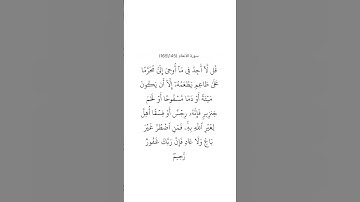 سورة الأنعام (145/165)
قُل لَّآ أَجِدُ فِى مَآ أُوحِىَ إِلَىَّ مُحَرَّمًا
عَلَىٰ طَاعِمٍ يَطْعَمُهُۥٓ إِلَّآ أَن يَكُونَ
مَيْتَةً أَوْ دَمًا مَّسْفُوحًا أَوْ لَحْمَ
خِنزِيرٍ فَإِنَّهُۥ رِجْسٌ أَوْ فِسْقًا أُهِلَّ
لِغَيْرِ ٱللَّهِ بِهِۦ ۚ فَمَنِ ٱضْطُرَّ غَيْرَ
بَاغٍ وَلَا عَادٍ فَإِنَّ رَبَّكَ غَفُورٌ
رَّحِيمٌ